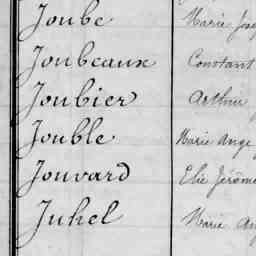 Joube Marie
Joubeaux Constant
Joubier Arthur
Jouble Marie Ange
Jouvard Elie Jérôme
Juhel Marie Ang